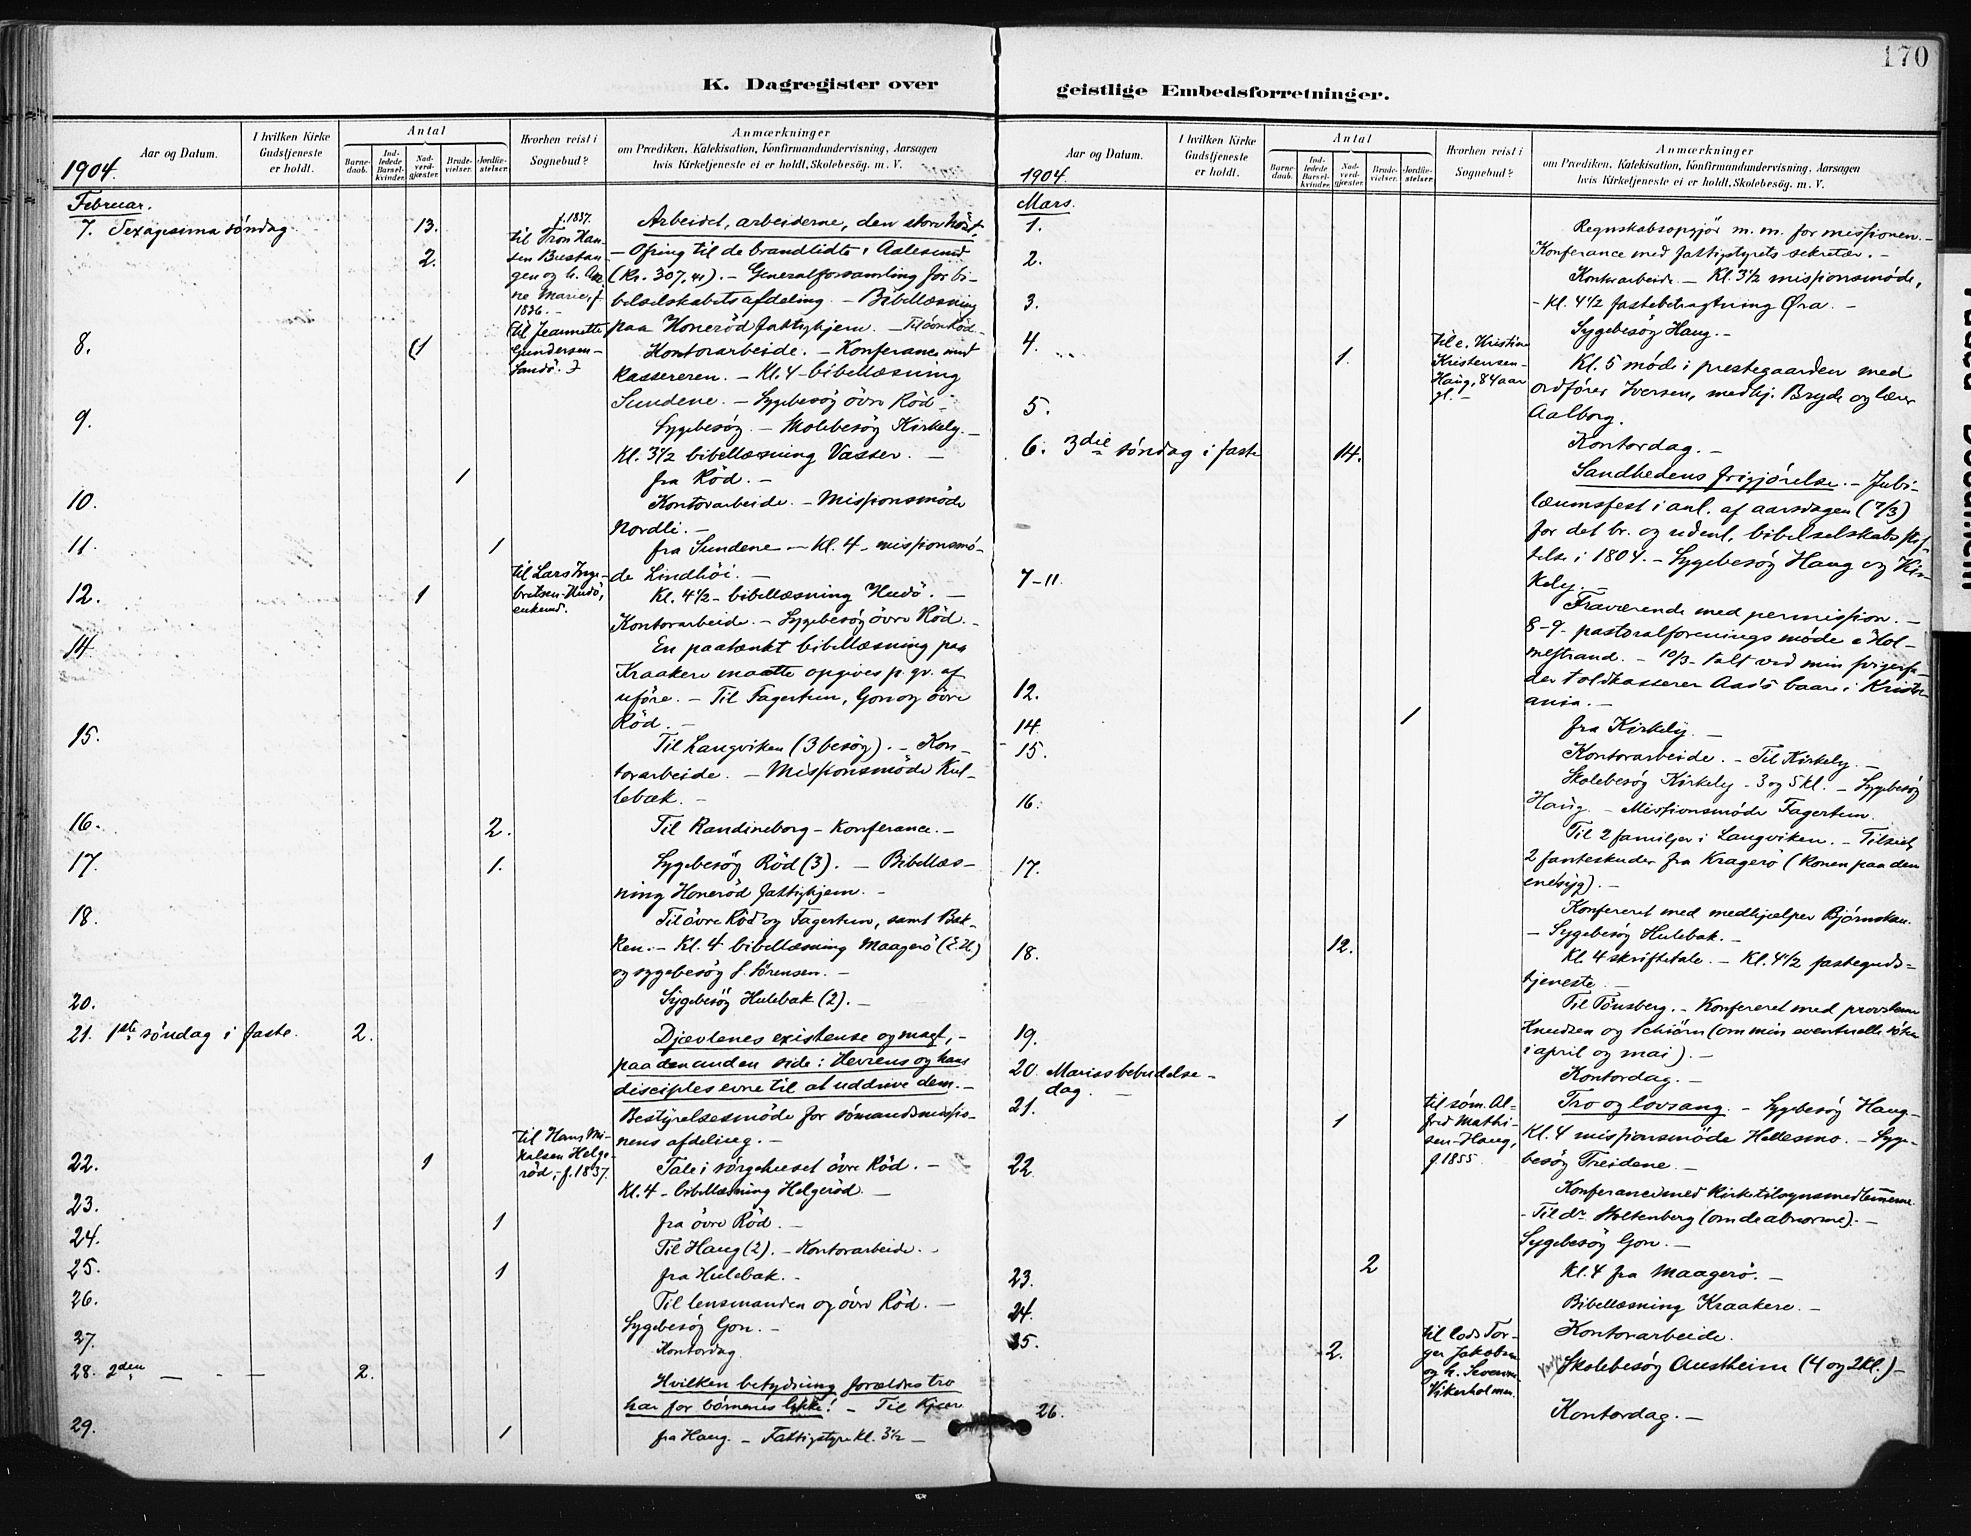 170
K. Dagregister over
geistlige Embedsforretninger.
Aar og Datum.
I hvilken Kirke
Gudstjeneste
er holdt.
Antal
Barne-
daab.
Ind-
ledede
Barsel-
kvinder.
Nad-
verd-
gjæster.
Brude-
vielser.
Jordfæ-
stelser.
Hvorhen reist i
Sognebud?
Anmærkninger
om Prædiken, Katekisation, Konfirmandundervisning, Aarsagen
hvis Kirketjeneste ei er holdt, Skolebesøg. m. V.
1904.
Februar.
7. Sexagesima søndag
13.
2.
f. 1837.
til Tron Han-
sen Bustan-
gen og h. An-
ne Marie, f.
1836. –
Arbeidet, arbeiderne, den store høst.
– Ofring til de brandlidte i Aalesund
(Kr. 307,41). – Generalforsamling for bi-
belselskabets afdeling. – Bibellæsning
paa Honerød fattighjem. – Til øvre Rød –
8.
(1
til Jeannette
Gundersen –
Sandø.)
Kontorarbeide. – Konferance med
kassereren. – Kl. 4 – bibellæsning
Sundene. – Sygebesøg övre Röd –
9.
Sygebesøg. – Skolebesøg Kirkely. –
Kl. 3 1/2 bibellæsning Vasser. –
1
fra Röd. –
10.
Kontorarbeide. – Missionsmöde
Nordli. –
11.
1
fra Sundene – Kl. 4 – missionsmö-
de Lindhöi. –
12.
1
til Lars Inge-
bretsen Hudö,
enkemd.
Kl. 4 1/2 – bibellæsning Hudö. –
Kontorarbeide. – Sygebesøg övre Röd. –
14.
En paatænkt bibellæsning paa
Kraakere maatte opgives p. gr. af
uföre. – Til Fagertun, Gon og övre
Röd. –
15.
Til Langviken (3 besøg). – Kon-
torarbeide. – Missionsmöde Hul-
lebæk. –
16.
2.
Til Randineborg – Konferance. –
17.
1.
Sygebesög Röd (3). – Bibellæs-
ning Honeröd fattighjem. –
18.
Til övre Röd og Fagertun, samt Bak-
ken. – Kl. 4 bibellæsning Maagerö (E. H.)
og sygebesög S. Sörensen. –
20.
Sygebesög Hulebak (2). –
21. 1ste søndag i faste.
2.
Djævlenes existense og magt, –
paa den anden side: Herrens og hans
disciples evne til at uddrive dem. –
Bestyrelsesmöde for sömandsmissio-
nens afdeling. –
22.
1
til Hans Mi-
kalsen Helge-
röd, – f. 1837.
Tale i sörgehuset övre Röd. –
Kl. 4 – bibellæsning Helgeröd. –
23.
1
fra övre Röd. –
24.
Til Haug (2). – Kontorarbeide. –
25.
1
fra Hulebak. –
26.
Til lensmanden og övre Röd. –
Sygebesög Gon. –
27.
Kontordag.
28. 2den – – –
2.
Hvilken betydning forældres tro
har for börnenes lykke! – Til Kjær
29.
1
fra Haug – Fattigstyre kl. 3 1/2 –
Aar og Datum.
I hvilken Kirke
Gudstjeneste
er holdt.
Antal
Barne-
daab.
Ind-
ledede
Barsel-
kvinder.
Nad-
verd-
gjæster.
Brude-
vielser.
Jordfæ-
stelser.
Hvorhen reist i
Sognebud?
Anmærkninger
om Prædiken, Katekisation, Konfirmandundervisning, Aarsagen
hvis Kirketjeneste ei er holdt, Skolebesøg. m. V.
1904.
Mars.
1.
Regnskabsopgjør m. m. for missionen. –
2.
Konferance med fattigstyrets sekretær. –
Kontorarbeide – Kl. 3 1/2 missionsmøde,
3.
– kl. 4 1/2 fastebetragtning Øra. –
Sygebesög Haug. –
4.
1.
til e. Kristine
Kristensen –
Haug, 84 aar
gl. –
Kl. 5 møde i prestegaarden med
ordfører Iversen, medhj. Bryde og lærer
Aalborg.
5.
Kontordag. –
6. 3die søndag i faste
14.
Sandhedens frigjørelse. – Jubi-
læumsfest i anl. af aarsdagen (7/3)
for det br. og udenl. bibelselskabs stif-
telse i 1804. – Sygebesög Haug og Kir-
kely. –
7–11.
Fraværende med permission. –
8–9. pastoralforeningsmøde i Hol-
mestrand. – 10/3 – talt ved min svigerfa-
der toldkasserer Aas's baare i Kristi-
ania. –
12.
1
fra Kirkely. –
14.
Kontorarbeide. – Til Kirkely. –
15.
Skolebesög Kirkely – 3 og 5 kl. – Sygebesög
Haug. – Missionsmöde Fagertun.
16.
Til 2 familjer i Langviken. – Tilseet
2 fanteskuder fra Kragerö (konen paa den
ene syg). –
17.
Konfereret med medhjælper Bjørnskau.
– Sygebesög Hulebak. –
18.
12.
Kl. 4 skriftetale. – Kl. 4 1/2 fasteguds-
tjeneste. –
Til Tönsberg. – Konfereret med provsterne
Knudsen og Schiörn (om min eventuelle
i april og mai). –
19.
Kontordag. –
20. Mariæ bebudelses-
dag. –
Tro og lovsang. – Sygebesög Haug –
21.
1
til søm. Al-
fred Mathi-
sen – Haug,
f. 1855.
Kl. 4 missionsmöde Hellesmo. – Syge-
besög Treidene. –
22.
Konferance med kirketilsynsmedlemmerne
– Til dr. Holtenberg (om de abnorme). –
Sygebesög Gon. –
23.
2
Kl. 4 fra Maagerö. –
24.
Bibellæsning Kraakere. –
25.
2.
til lods Tor-
ger Jakobsen
og h. Severine
Vikerholmen.
Kontorarbeide.
Skolebesög Austheim (4 og 2 kl.) –
26.
Kontordag. –